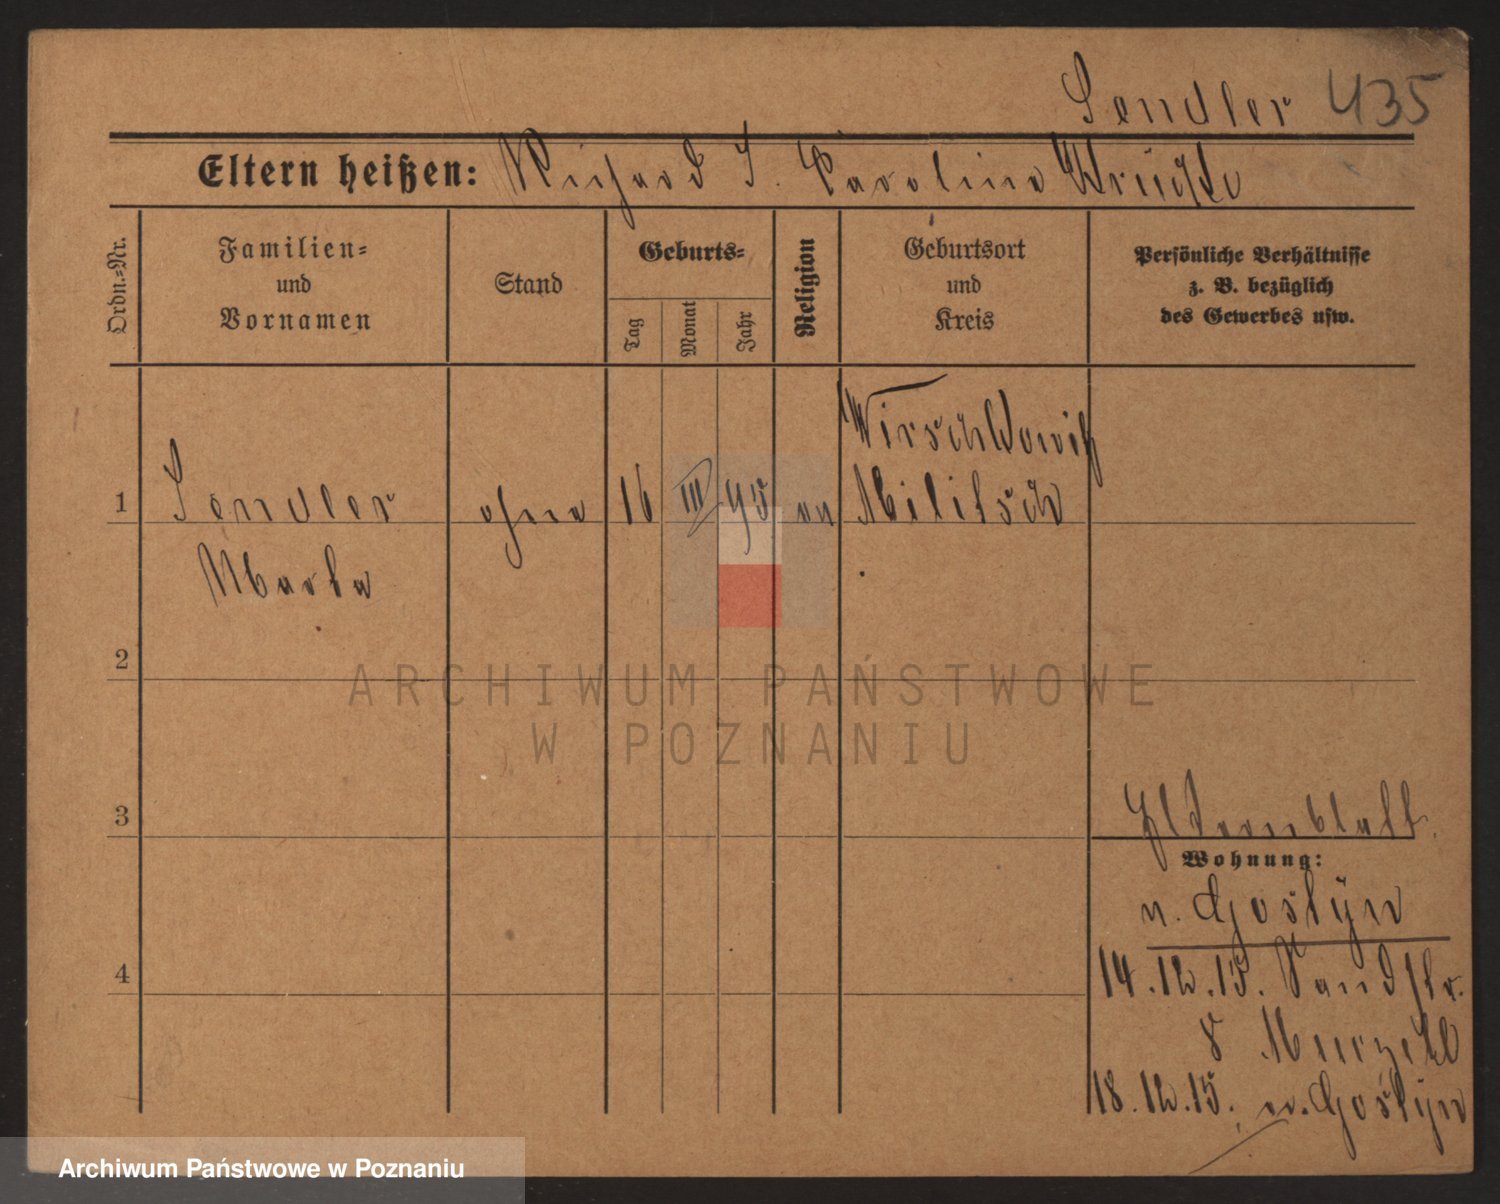 Sendler 435
Eltern heißen: Richard S. Caroline
Ordn.-Nr.
Familien-
und
Vornamen
Stand
Geburts-
Tag
Monat
Jahr
Religion
Geburtsort
und
Kreis
Persönliche Verhältnisse
z. B. bezüglich
des Gewerbes usw.
Wirschkowitz
1 Sendler ohne 16 III 95 ev Militsch
Marta
2
3
Elternblatt.
Wohnung:
n. Gostyn
4
14.12.15. Sandstr.
8
18.12.15. n. Gostyn
ARCHIWUM PAŃSTWOWE
W POZNANIU
Archiwum Państwowe w Poznaniu